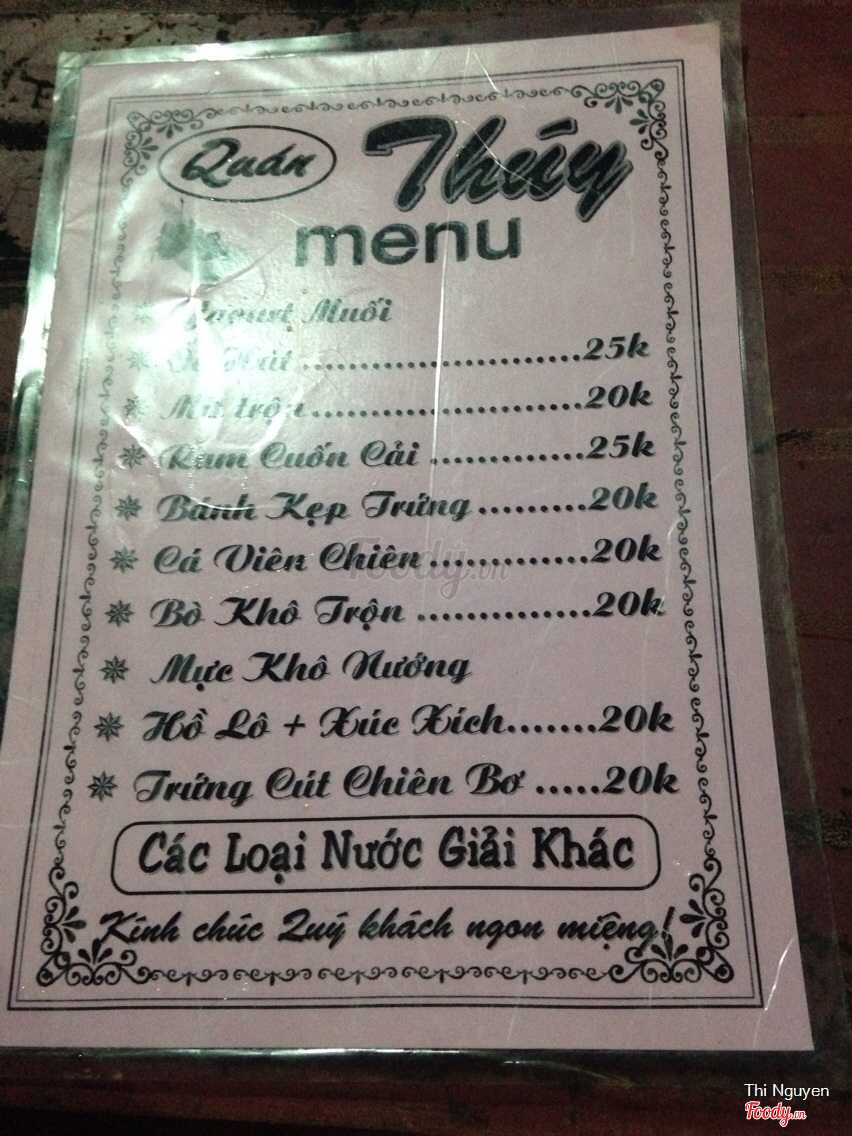 Quán Thúy
menu
Yaourt Muối
Ốc Hút ......................25k
Mít trộn ......................20k
Ram Cuốn Cải ............25k
Bánh Kẹp Trứng .........20k
Cá Viên Chiên ............20k
Bò Khô Trộn ..............20k
Mực Khô Nướng
Hồ Lô + Xúc Xích.......20k
Trứng Cút Chiên Bơ .....20k
Các Loại Nước Giải Khác
Kính chúc Quý khách ngon miệng!
Foody.vn
Thi Nguyen
Foody.vn